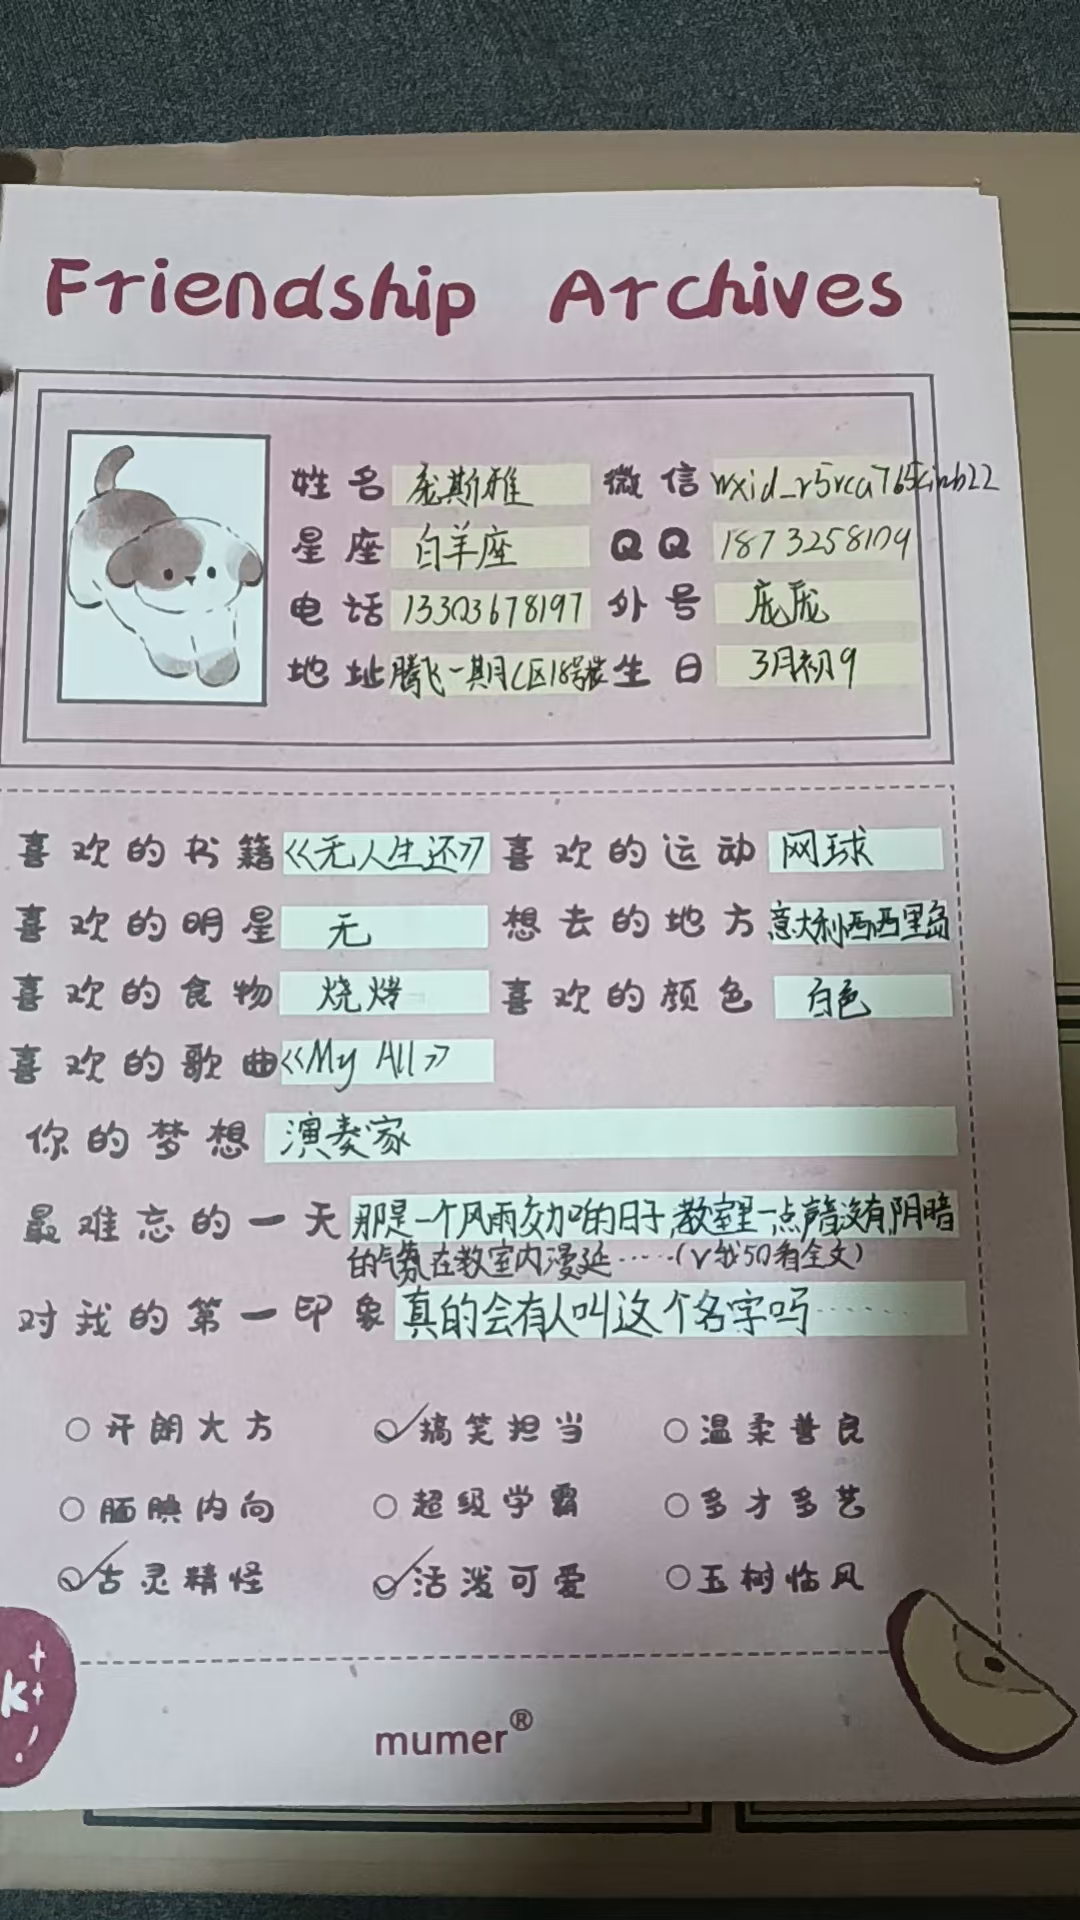 Friendship Archives
姓名 庞斯雅 微信 wxid_r5rca765cinb22
星座 白羊座 QQ 1873258109
电话 13303678197 外号 庞庞
地址 腾飞一期C区18号楼 生日 3月初9
喜欢的书籍 《无人生还》 喜欢的运动 网球
喜欢的明星 无 想去的地方 意大利西西里岛
喜欢的食物 烧烤 喜欢的颜色 白色
喜欢的歌曲 《My All》
你的梦想 演奏家
最难忘的一天 那是一个风雨交加的日子,教室里一点声音没有,阴暗
的气氛在教室内漫延……(v我50看全文)
对我的第一印象 真的会有人叫这个名字吗……
开朗大方 搞笑担当 温柔善良
腼腆内向 超级学霸 多才多艺
古灵精怪 活泼可爱 玉树临风
k
mumer®